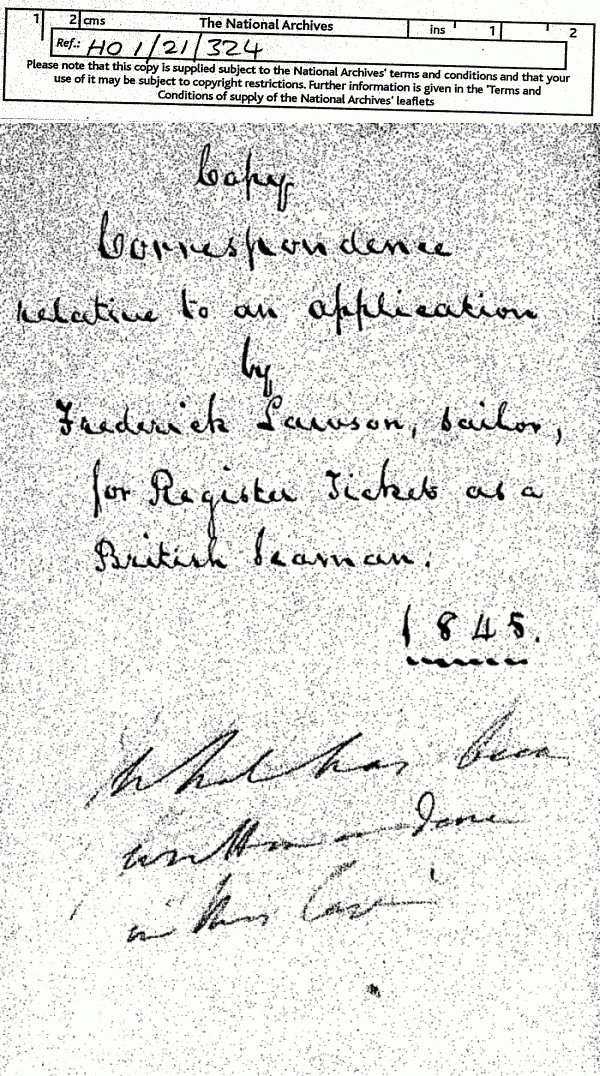 1 2 cms The National Archives ins 1 2
Ref.: HO 1/21/324
Please note that this copy is supplied subject to the National Archives' terms and conditions and that your
use of it may be subject to copyright restrictions. Further information is given in the 'Terms and
Conditions of supply of the National Archives' leaflets
Copy
Correspondence
relative to an application
by
Frederick Lawson, sailor,
for Register Ticket as a
British Seaman.
1845.
What has been
written done
in this Case